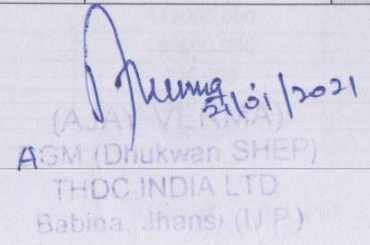 21/01/2021
(AJAY VERMA)
AGM (Dhukwan SHEP)
THDC INDIA LTD
Babina, Jhansi (U.P.)